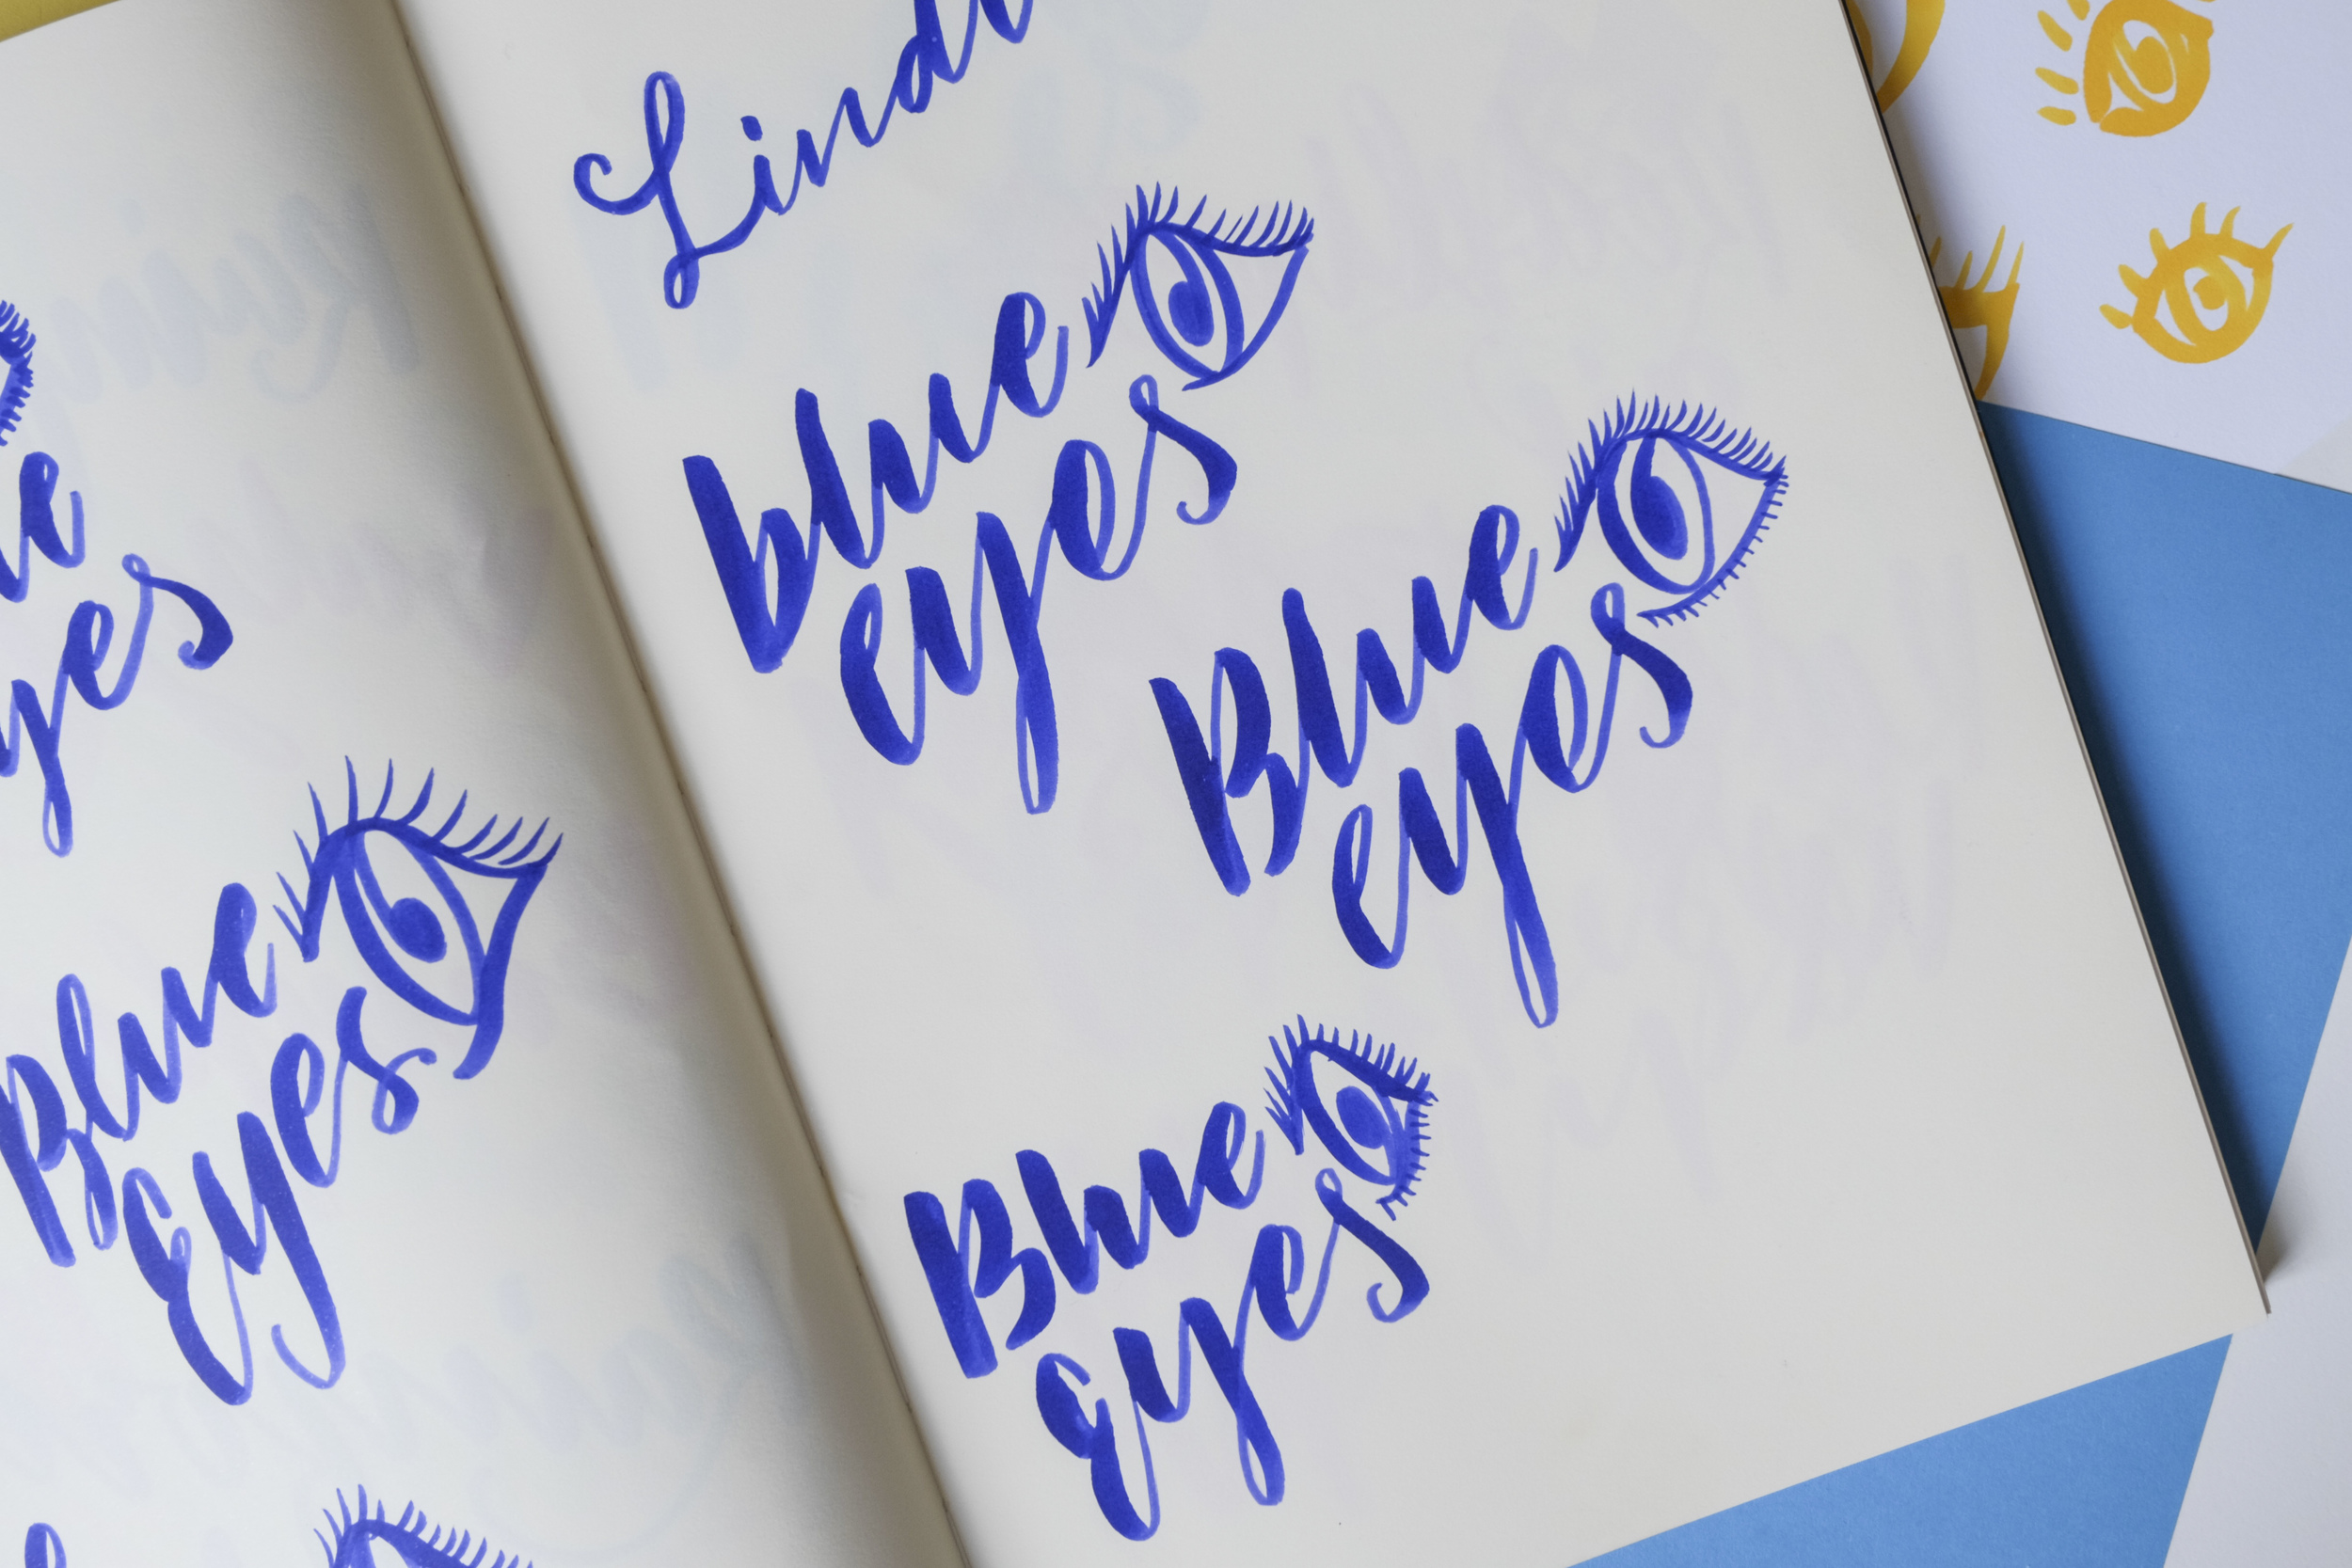 yes
Blue
Eyes
blue
eyes
Blue
eyes
Blue
Eyes